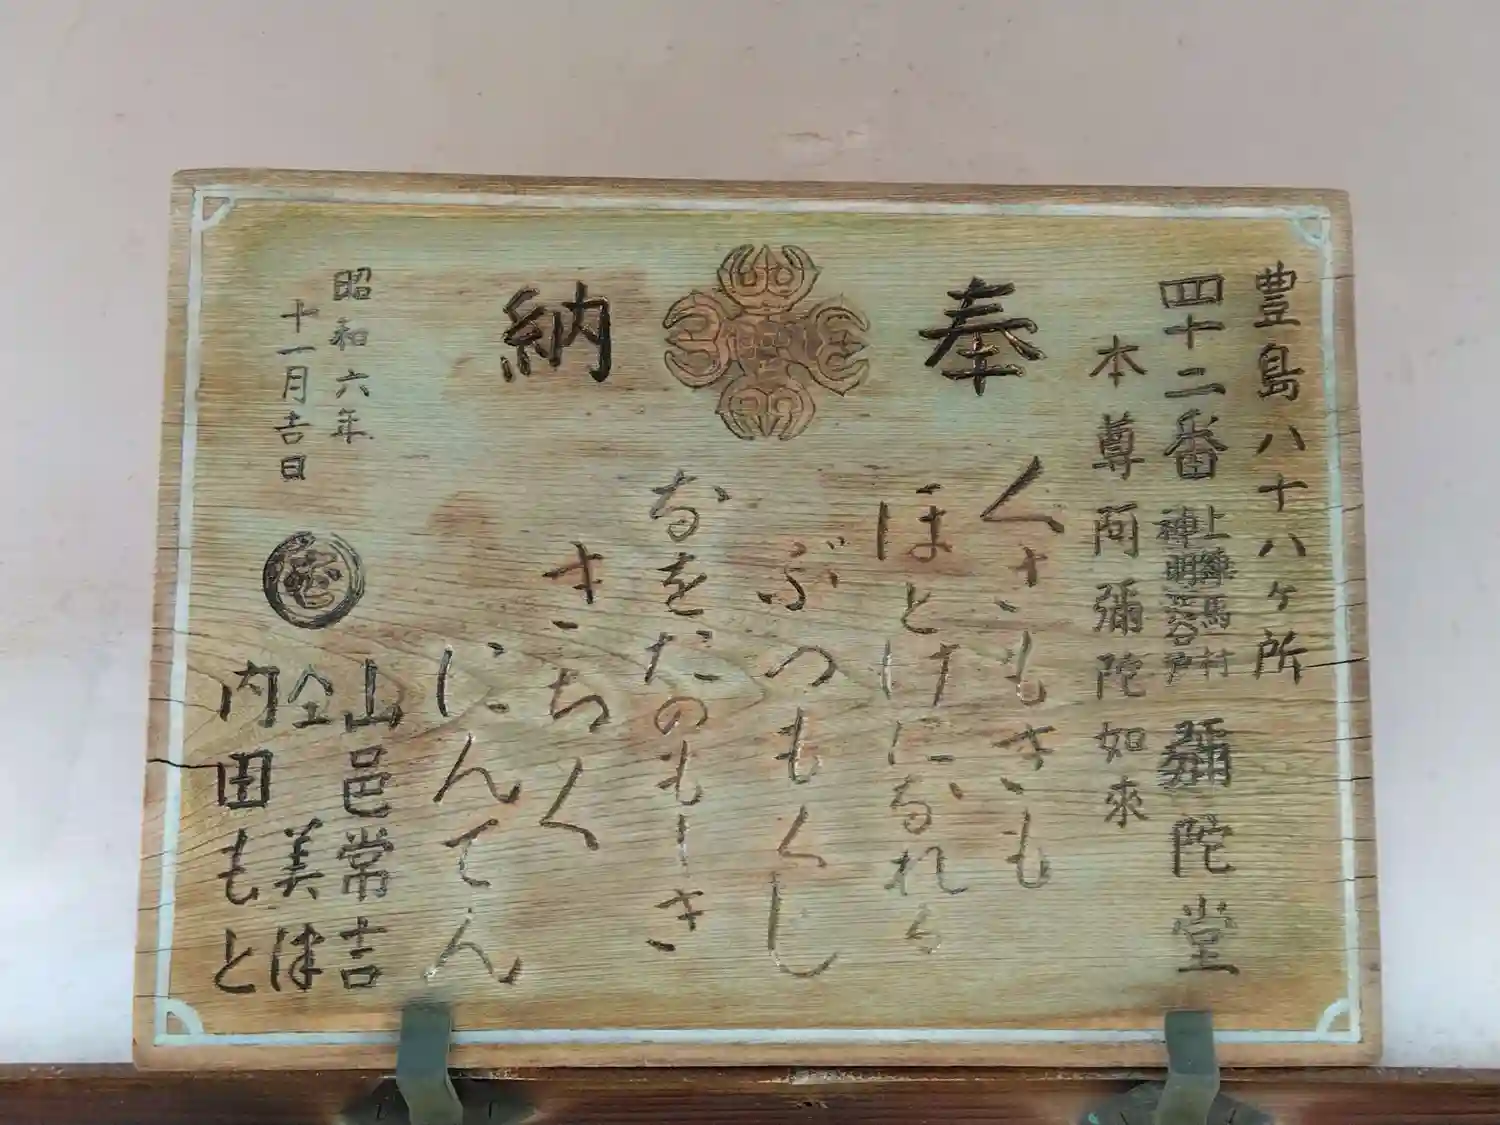 豊島八十八ヶ所
四十二番 上練馬村 神明ヶ谷戸 彌陀堂
本尊阿彌陀如來
奉納
くさもきも
ほとけになれる
ぶつもくし
なをたのもしき
きちく
にんてん
昭和六年
十一月吉日
山邑常吉
仝 美津
内田もと